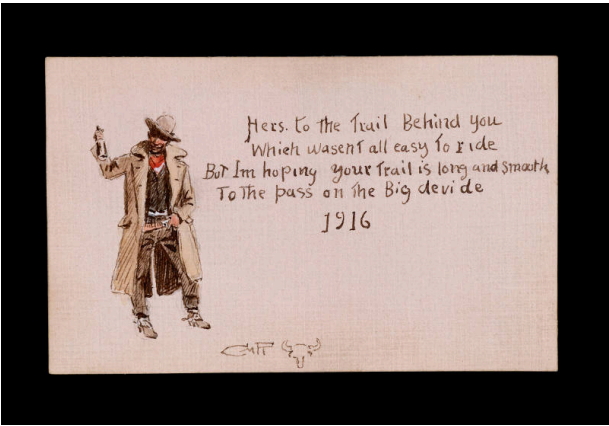 Hers. to the Trail Behind you
Which wasent all easy to ride
But Im hoping your trail is long and smooth
To the pass on the Big devide
1916
CMR